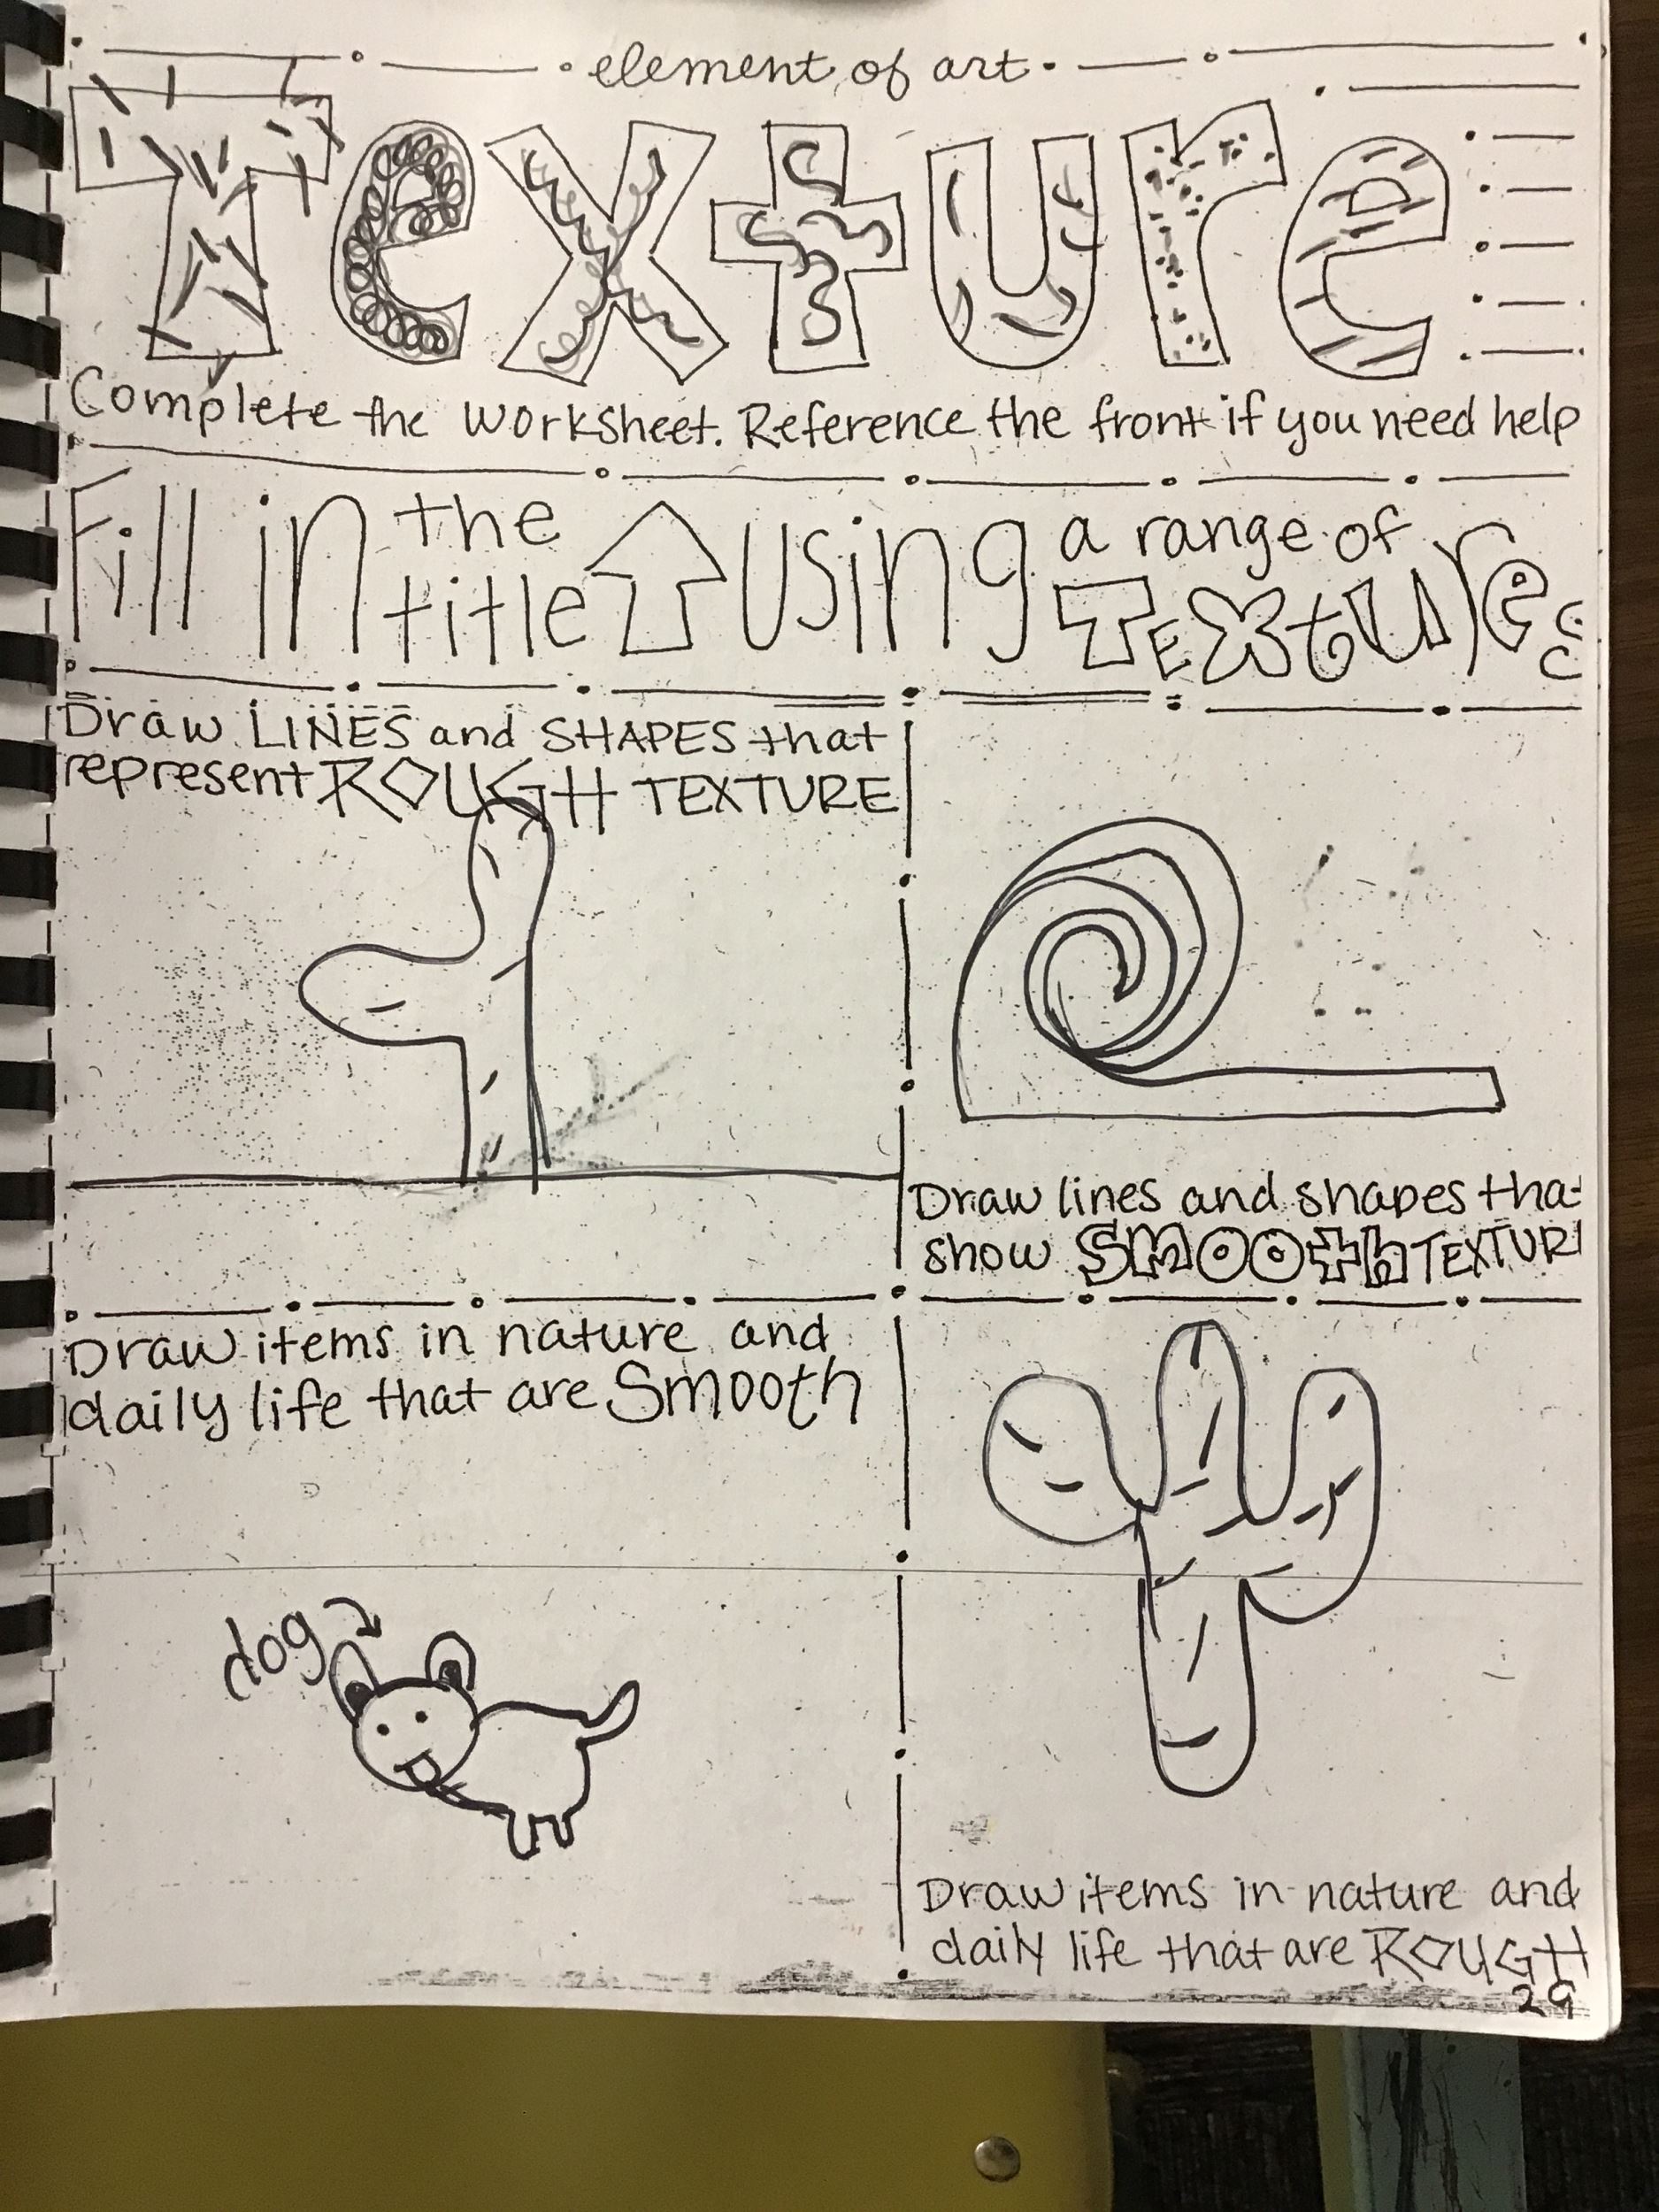 element of art
Texture
Complete the worksheet. Reference the front if you need help
Fill in the title using a range of TExtures
Draw LINES and SHAPES that
represent ROUGH TEXTURE
Draw lines and shapes that
show SMOOth TEXTUR
Draw items in nature and
daily life that are Smooth
dog
Draw items in nature and
daily life that are ROUGH
29